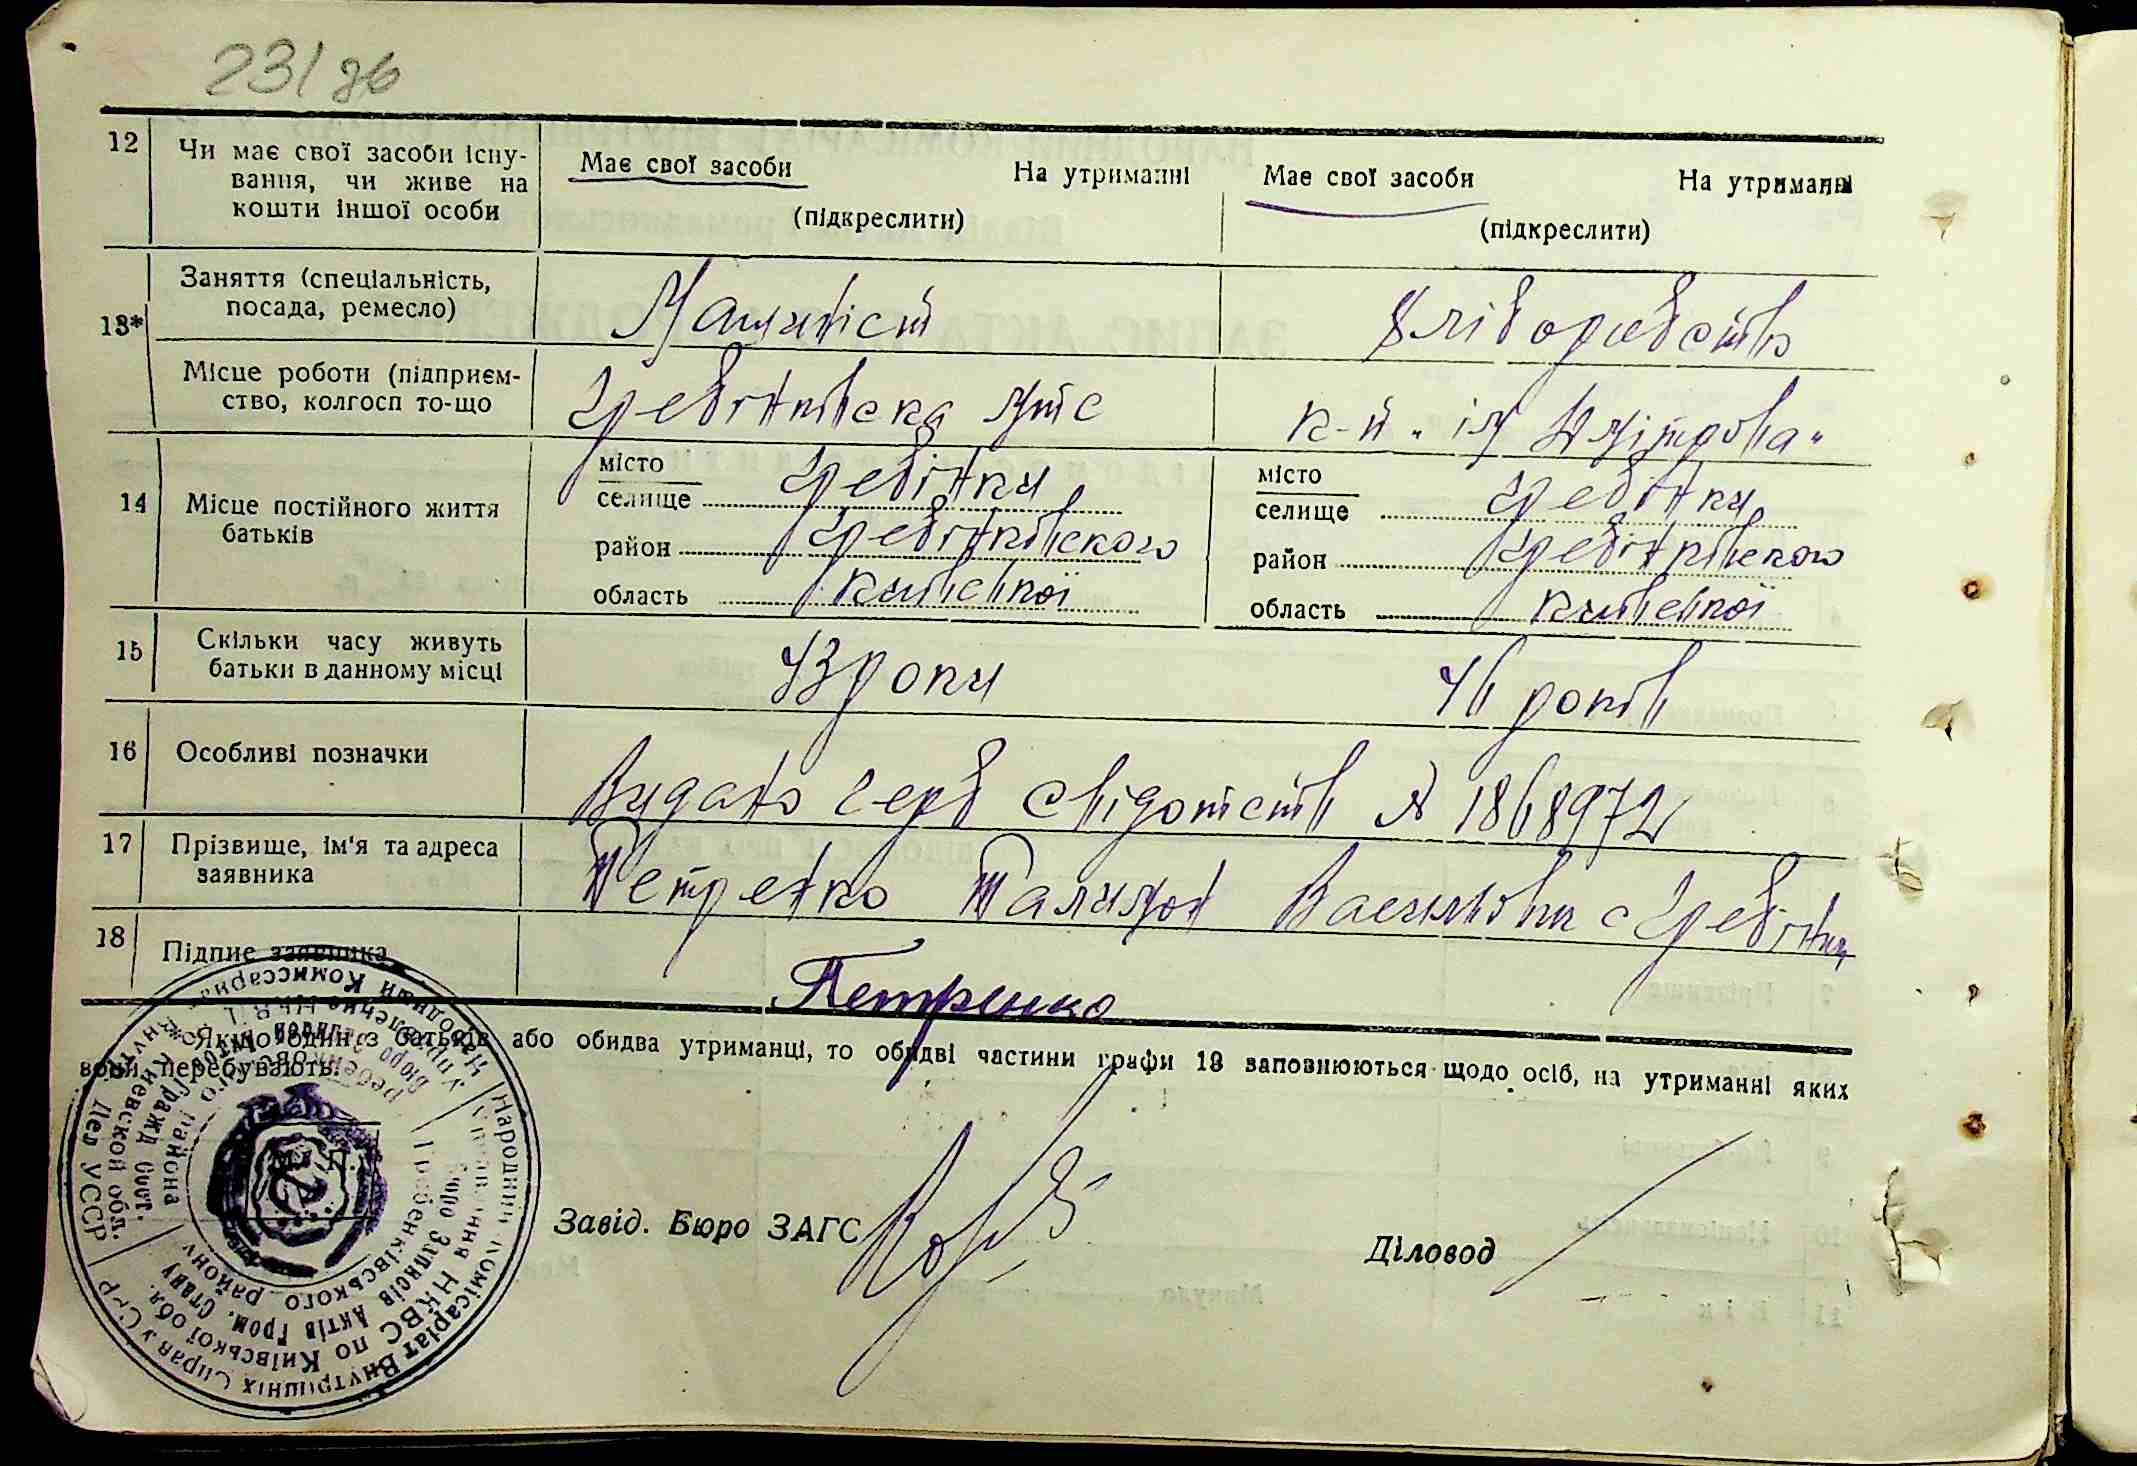 23/зв
12 Чи має свої засоби існу-
вання, чи живе на
кошти іншої особи
Має свої засоби На утриманні
(підкреслити)
Має свої засоби На утриманні
(підкреслити)
13* Заняття (спеціальність,
посада, ремесло)
Машиніст
Хліборобство
Місце роботи (підприєм-
ство, колгосп то-що
Гребінківска мтс
к-п „ім Димітрова"
14 Місце постійного життя
батьків
місто
селище Гребінки
район Гребінківского
область Київської
місто
селище Гребінки
район Гребінківского
область Київської
15 Скільки часу живуть
батьки в данному місці
43 роки
46 років
16 Особливі позначки
Видано герб свідотств № 1868972
17 Прізвище, ім'я та адреса
заявника
Петренко Василівни с Гребінки
18 Підпис заявника
Петренко
* Якщо один з батьків або обидва утриманці, то обидві частини графи 13 заповнюються щодо осіб, на утриманні яких
вони перебувають.
Завід. Бюро ЗАГС
Діловод
Народний Комісаріат Внутрішніх Справ УСРР
Управління НКВС по Київській обл.
Бюро Записів Актів Гром. Стану
Гребенківського району